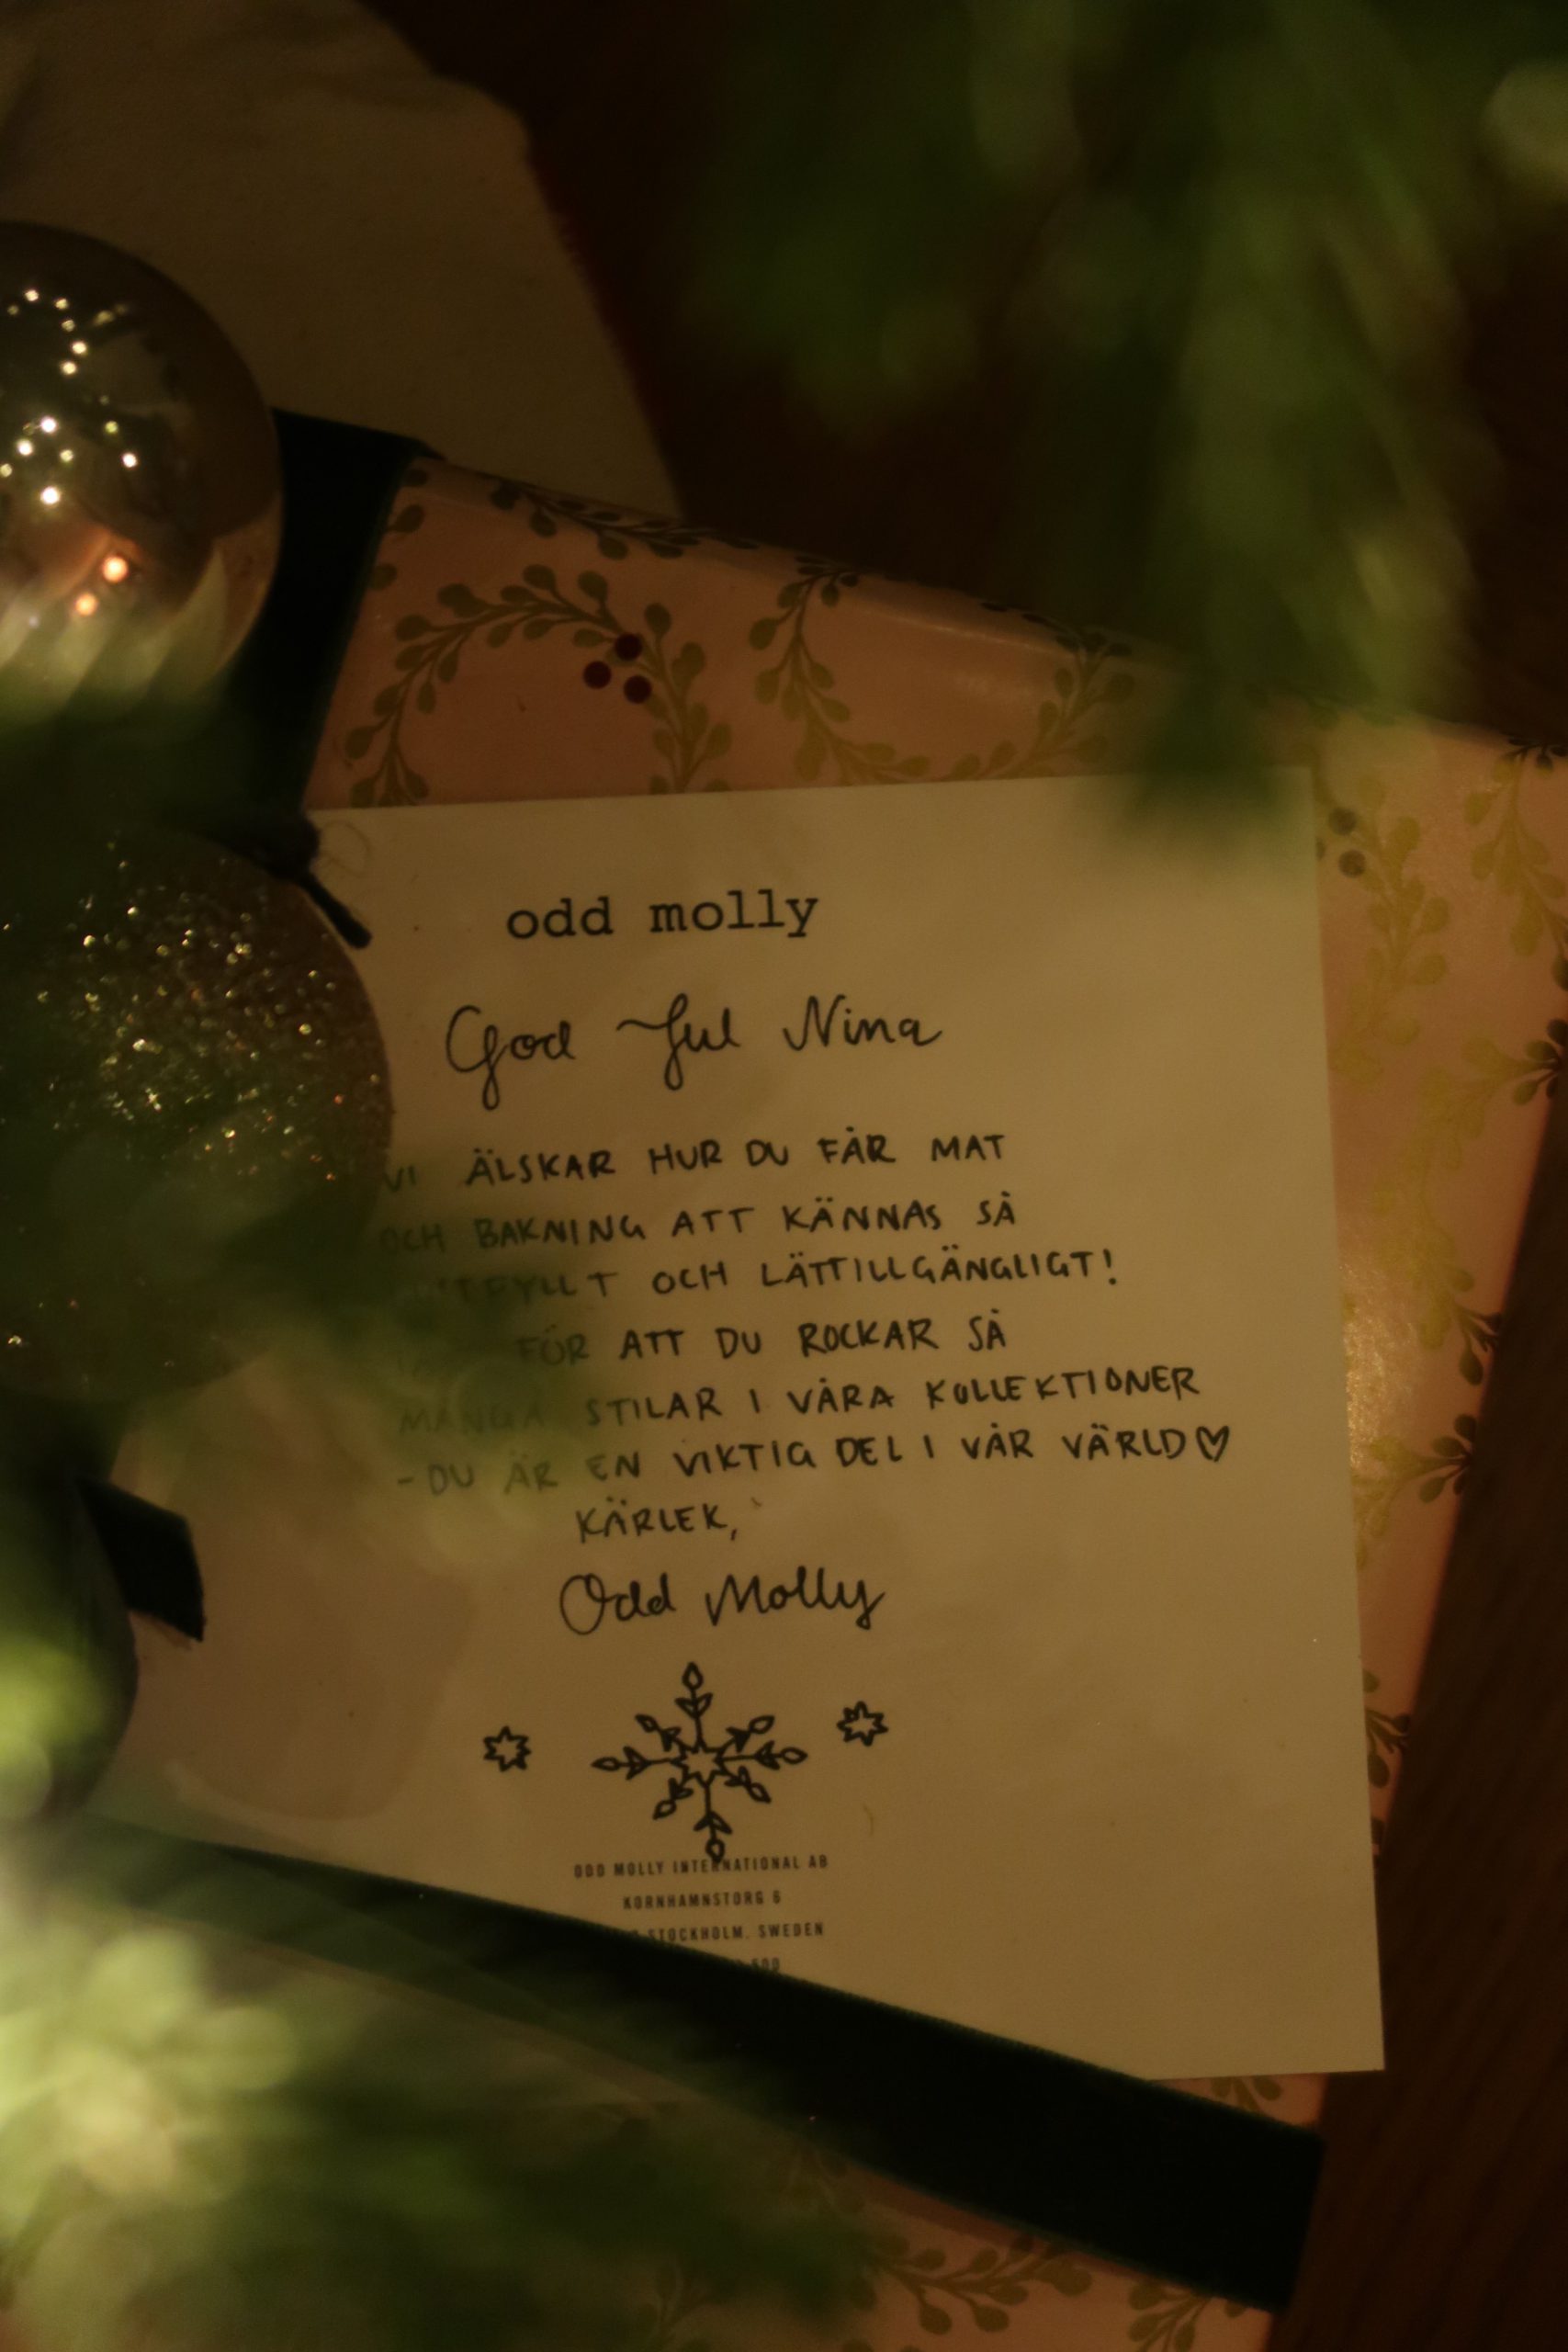 odd molly
God Jul Nina
VI ÄLSKAR HUR DU FÅR MAT
OCH BAKNING ATT KÄNNAS SÅ
OCH LÄTTILLGÄNGLIGT!
FÖR ATT DU ROCKAR SÅ
MÅNGA STILAR I VÅRA KOLLEKTIONER
- DU ÄR EN VIKTIG DEL I VÅR VÄRLD♡
KÄRLEK,
Odd Molly
ODD MOLLY INTERNATIONAL AB
KORNHAMNSTORG 6
STOCKHOLM, SWEDEN